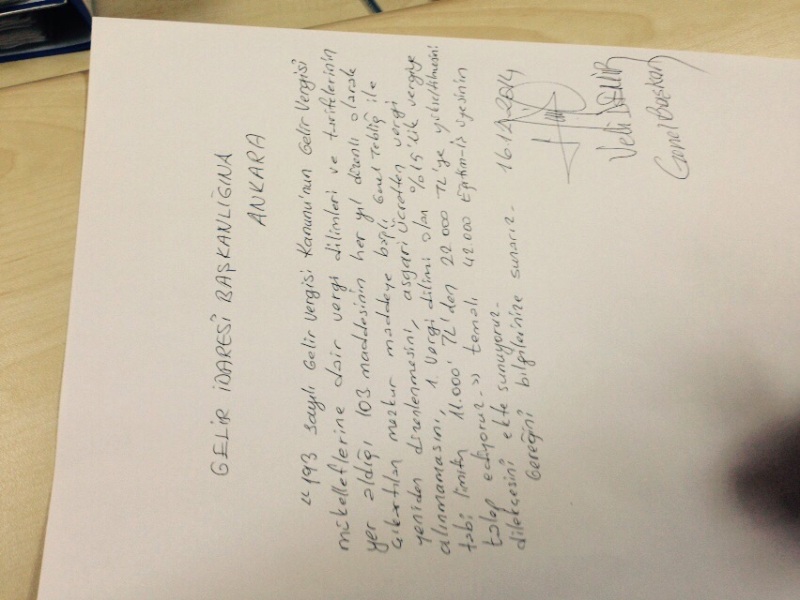 GELİR İDARESİ BAŞKANLIĞINA
ANKARA
"193 sayılı Gelir Vergisi Kanunu'nun Gelir Vergisi
mükelleflerine dair vergi dilimleri ve tarifelerinin
yer aldığı 103 maddesinin her yıl düzenli olarak
çıkartılan mezkur maddeye bağlı Genel Tebliğ ile
yeniden düzenlenmesini, asgari ücretten vergi
alınmamasını, 1. Vergi dilimi olan %15'lik vergiye
tabi limitin 11.000' TL'den 22.000 TL'ye yükseltilmesini
talep ediyoruz." temalı 42000 Eğitim-İş üyesinin
dilekçesini ekte sunuyoruz.
Gereğini bilgilerinize sunarız. 16.12.2014
Veli DEMİR
Genel Başkan